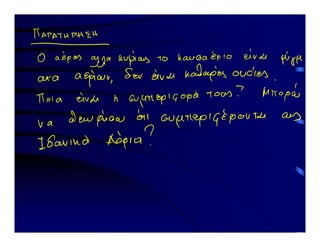 ΠΑΡΑΤΗΡΗΣΗ
Ο αέρας αλλά κυρίως το καυσαέριο είναι μίγμα
από αέρια, δεν είναι καθαρές ουσίες.
Ποια είναι η συμπεριφορά τους? Μπορώ
να θεωρήσω ότι συμπεριφέρονται ως
Ιδανικά Αέρια?